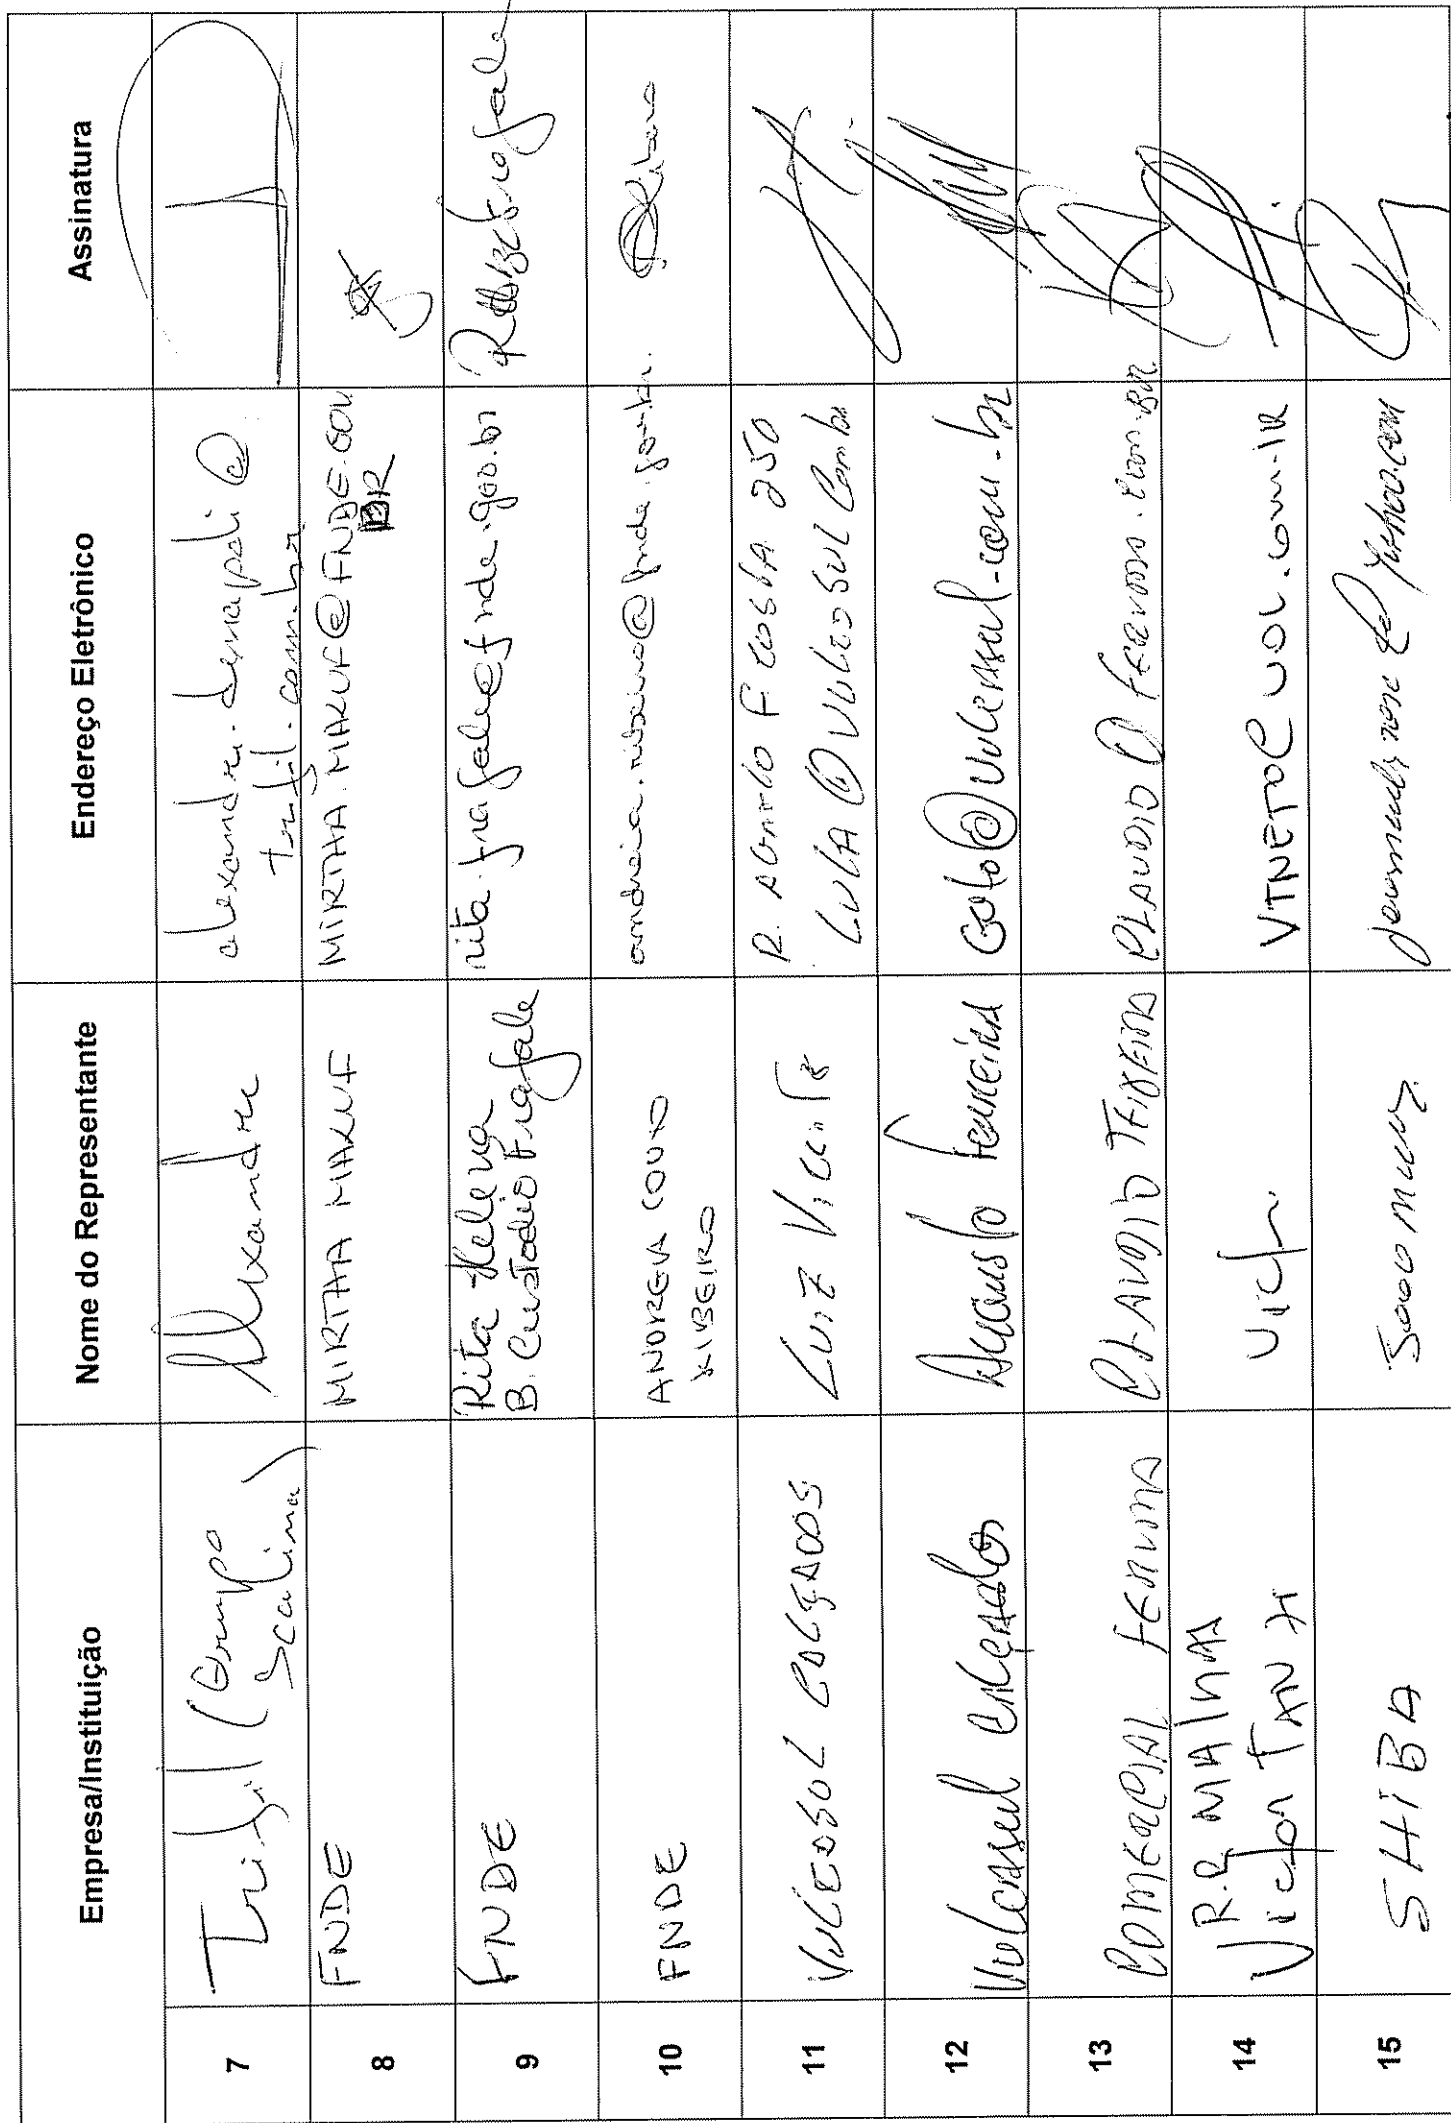 Empresa/Instituição Nome do Representante Endereço Eletrônico Assinatura
7 Trifil (Grupo Scalina) Alexandre alexandre.denapoli@
trifil.com.br
8 FNDE MIRTHA MARUF MIRTHA.MARUF@FNDE.GOV
BR
9 FNDE Rita Helena
B. Custodio Fragale rita.fragale@fnde.gov.br
10 FNDE ANDREIA COUTO
RIBEIRO andreia.ribeiro@fnde.gov.br.
11 VULCASUL CALÇADOS LUIZ VICENTE R. AGNELO F. COSTA 250
LULA@VULCASUL.Com.br
12 Vulcasul Calçados Augusto Ferreira Goto@vulcasul.com.br
13 COMERCIAL FERMMA CLAUDIO TEIXEIRA CLAUDIO@fermma.com.BR
14 R.R MALHAS
Victor TANJI Victor VTNETO@UOL.com.br
15 SHIBA